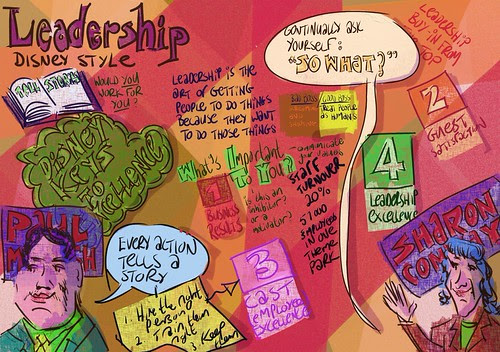 Leadership
DISNEY STYLE
TALK STORY
WOULD YOU
WORK FOR
YOU?
LEADERSHIP IS THE
ART OF GETTING
PEOPLE TO DO THINGS
BECAUSE THEY WANT
TO DO THOSE THINGS
CONTINUALLY ASK
YOURSELF:
"SO WHAT?"
LEADERSHIP
TOP
BAD BOSS
GOOD BOSS
TREAT PEOPLE
AS HUMANS
2
GUEST
SATISFACTION
DISNEY
KEYS
TO
EXCELLENCE
What's Important
To You?
1
BUSINESS
RESULTS
is this an
inhibitor?
or a
motivator?
communicate
STAFF
TURNOVER
20%
51000
EMPLOYEES
IN ONE
THEME
PARK
4
LEADERSHIP
Excellence
PAUL
SHARON
EVERY ACTION
TELLS A
STORY
1. Hire the right
person
2 Train them
right
3 Keep
them
3
CAST
EMPLOYEE
EXCELLENCE